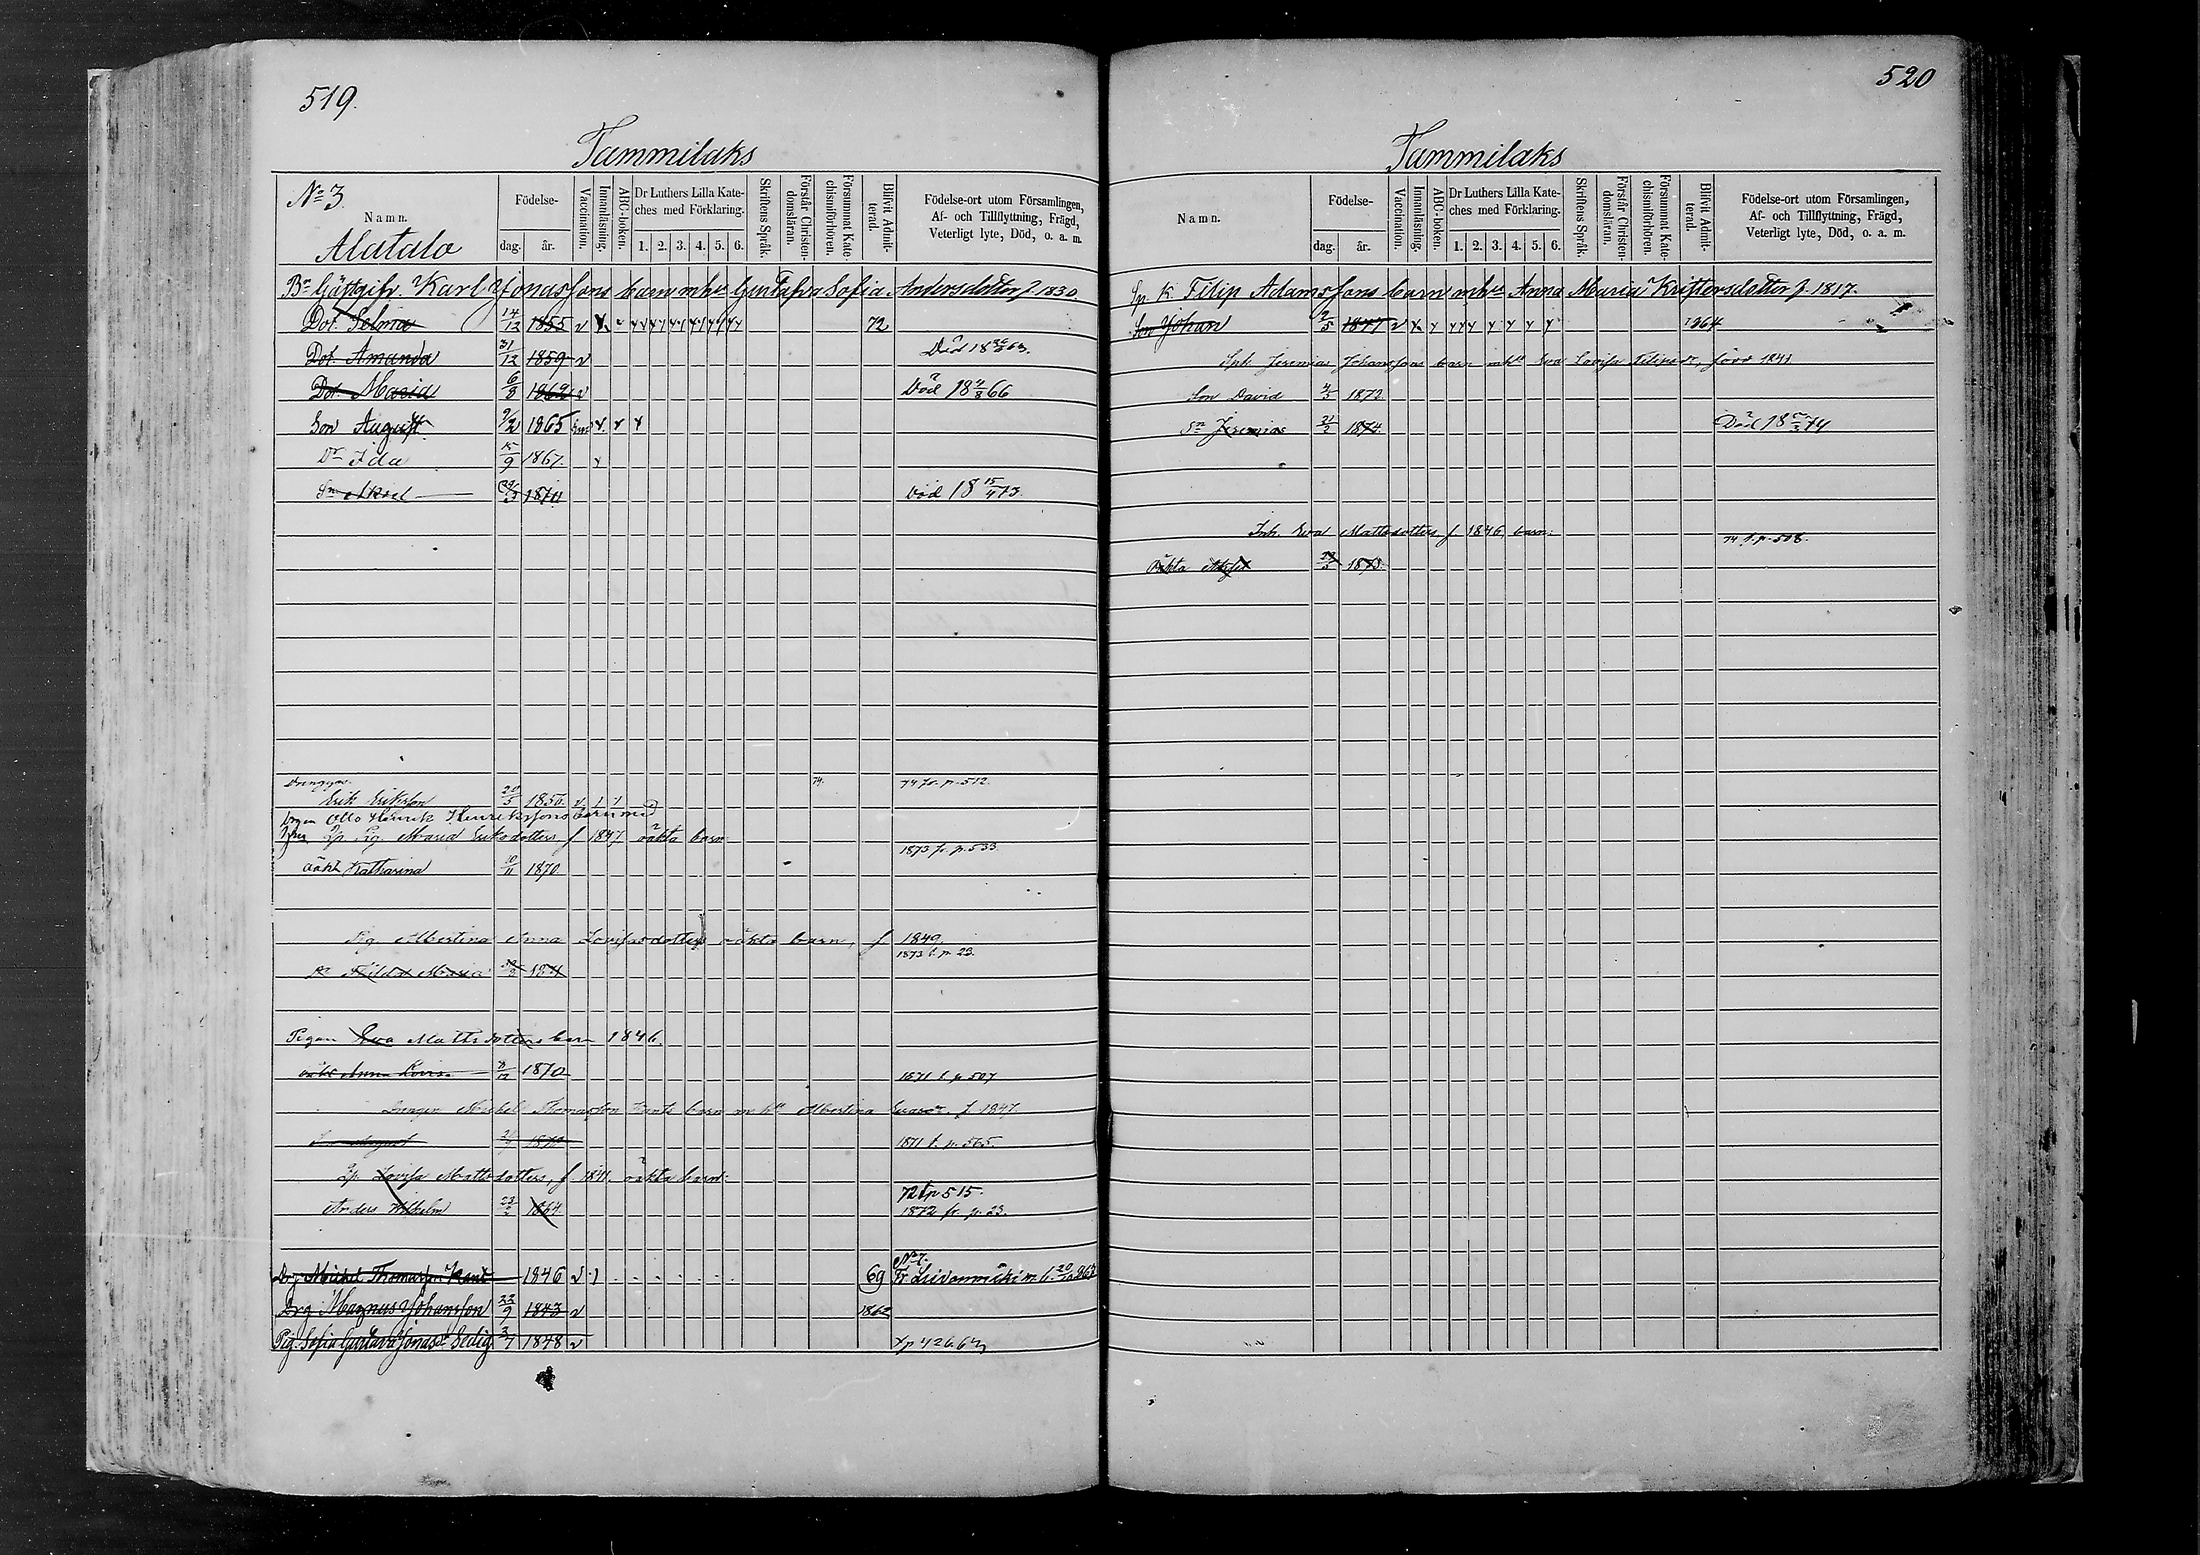 519.
Tammilaks
No 3.
Namn.
Alatalo
Födelse-
dag. år.
Vaccination.
Innanläsning.
ABC-boken.
Dr Luthers Lilla Kate-
ches med Förklaring.
1. 2. 3. 4. 5. 6.
Skriftens Språk.
Förstår Christen-
domsläran.
Försummat Kate-
chismiförhören.
Blifvit Admit-
terad.
Födelse-ort utom Församlingen,
Af- och Tillflyttning, Frägd,
Veterligt lyte, Död, o. a. m.
Karl Jonassons barn mhu Gustafva Sofia Andersdotter f. 1830.
Dot. Selma 14/12 1855 v 72
Dot. Amanda 31/12 1859 v Död 18 63.
Dot. Maria 6/8 1862 v Död 18 66
Son August 9/2 1865
Dr Ida 9 1867.
Sn 1870 Död 18 15/4 73.
74. 74 fr. p. 512.
Erik Eriksson 20/5 1850. v
Otto Henrik Henrikssons barn med
Maria Eriksdotters f 1847 oäkta barn
1873 fr. p. 533
Katharina 10/11 1870
Pig. Albertina Anna Lovisasdotters oäkta barn, f 1849.
1873 t. p. 23.
Hilda Maria
Pigan Eva Mattsdotters barn 1846.
Anna Lovisa 12 1870 1871 t. p. 507
Drengen Michel Thomasson Kants barn m hu Albertina f. 1847.
1871 t. p. 565.
Lovisa Mattsdotters, f 1841. oäkta barn.
72 t p 515.
Anders Wilhelm 23/2 1864. 1872 fr. p. 23.
Drg Michel Thomasson Kant 1846 v 69
Drg Magnus Johansson 22/9 1843 v 1862
Pig. Sofia Gustava Jonasdr Sedig 3/7 1848 v
520
Tammilaks
Namn.
Födelse-
dag. år.
Vaccination.
Innanläsning.
ABC-boken.
Dr Luthers Lilla Kate-
ches med Förklaring.
1. 2. 3. 4. 5. 6.
Skriftens Språk.
Förstår Christen-
domsläran.
Försummat Kate-
chismiförhören.
Blifvit Admit-
terad.
Födelse-ort utom Församlingen,
Af- och Tillflyttning, Frägd,
Veterligt lyte, Död, o. a. m.
Filip Adamssons barn mhu Anna Maria Kristersdotter f. 1817.
Son Johan 2/5 1847 v 1864
Jeremias Johanssons barn mhu Eva Lovisa Filipsdr, född 1841
Son David 4/3 1872
Sn Jeremias 21/2 1874. Död 18 74
Inh. Eva Mattsdotters f. 1846, barn.
74 t. p. 508.
Oäkta 1873.